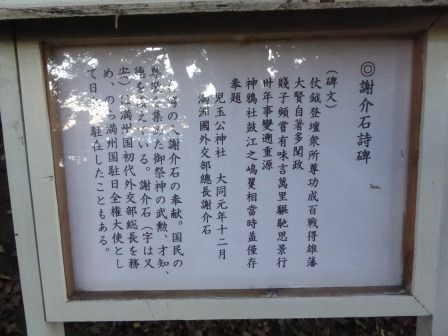 ◎謝介石詩碑
（碑文）
仗鉞登壇衆所尊功成百戰得雄藩
大賢自著多聞政
賤子頻嘗有味言萬里驅馳思景行
卅年事變遡重源
神鴉社鼓江之嶋矍相當時蓋僅存
拳題
児玉公神社　大同元年十二月
満洲國外交部總長謝介石
の人謝介石の奉献。国民の
尊崇を集めた御祭神の武勲、才知、
徳を称えている。謝介石（字は又
安）は満州国初代外交部総長を務
め、のち満州国駐日全権大使とし
て日本駐在したこともある。